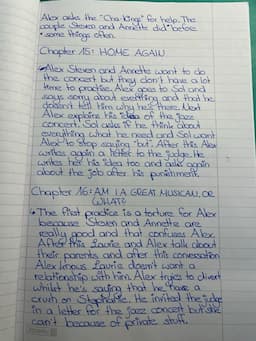 Alex asks the "Cha-Kings" for help. The
couple Steven and Annette did before
some things often.
Chapter 15: HOME AGAIN
Alex Steven and Annette want to do
the concert but they don't have a lot
time to practise. Alex goes to Sol and
says sorry about everything and that he
doesn't tell him why he's there. Next
Alex explains his idea of the jazz
concert. Sol asks if he think about
everything what he need and Sol want
Alex to stop saying "but". After this Alex
writes again a letter to the judge. He
writes her his idea too and asks again
about the job after his punishment.
Chapter 16: AM I A GREAT MUSICAN, OR
WHAT?
The first practice is a torture for Alex
because Steven and Annette are
really good and that confuses Alex.
After this Laurie and Alex talk about
their parents and after this conversation
Alex knows Laurie doesn't want a
relationship with him. Alex trys to divert
whilst he's saying that he have a
crush on Stephanie. He invited the judge
in a letter for the jazz concert but she
can't because of private stuff.